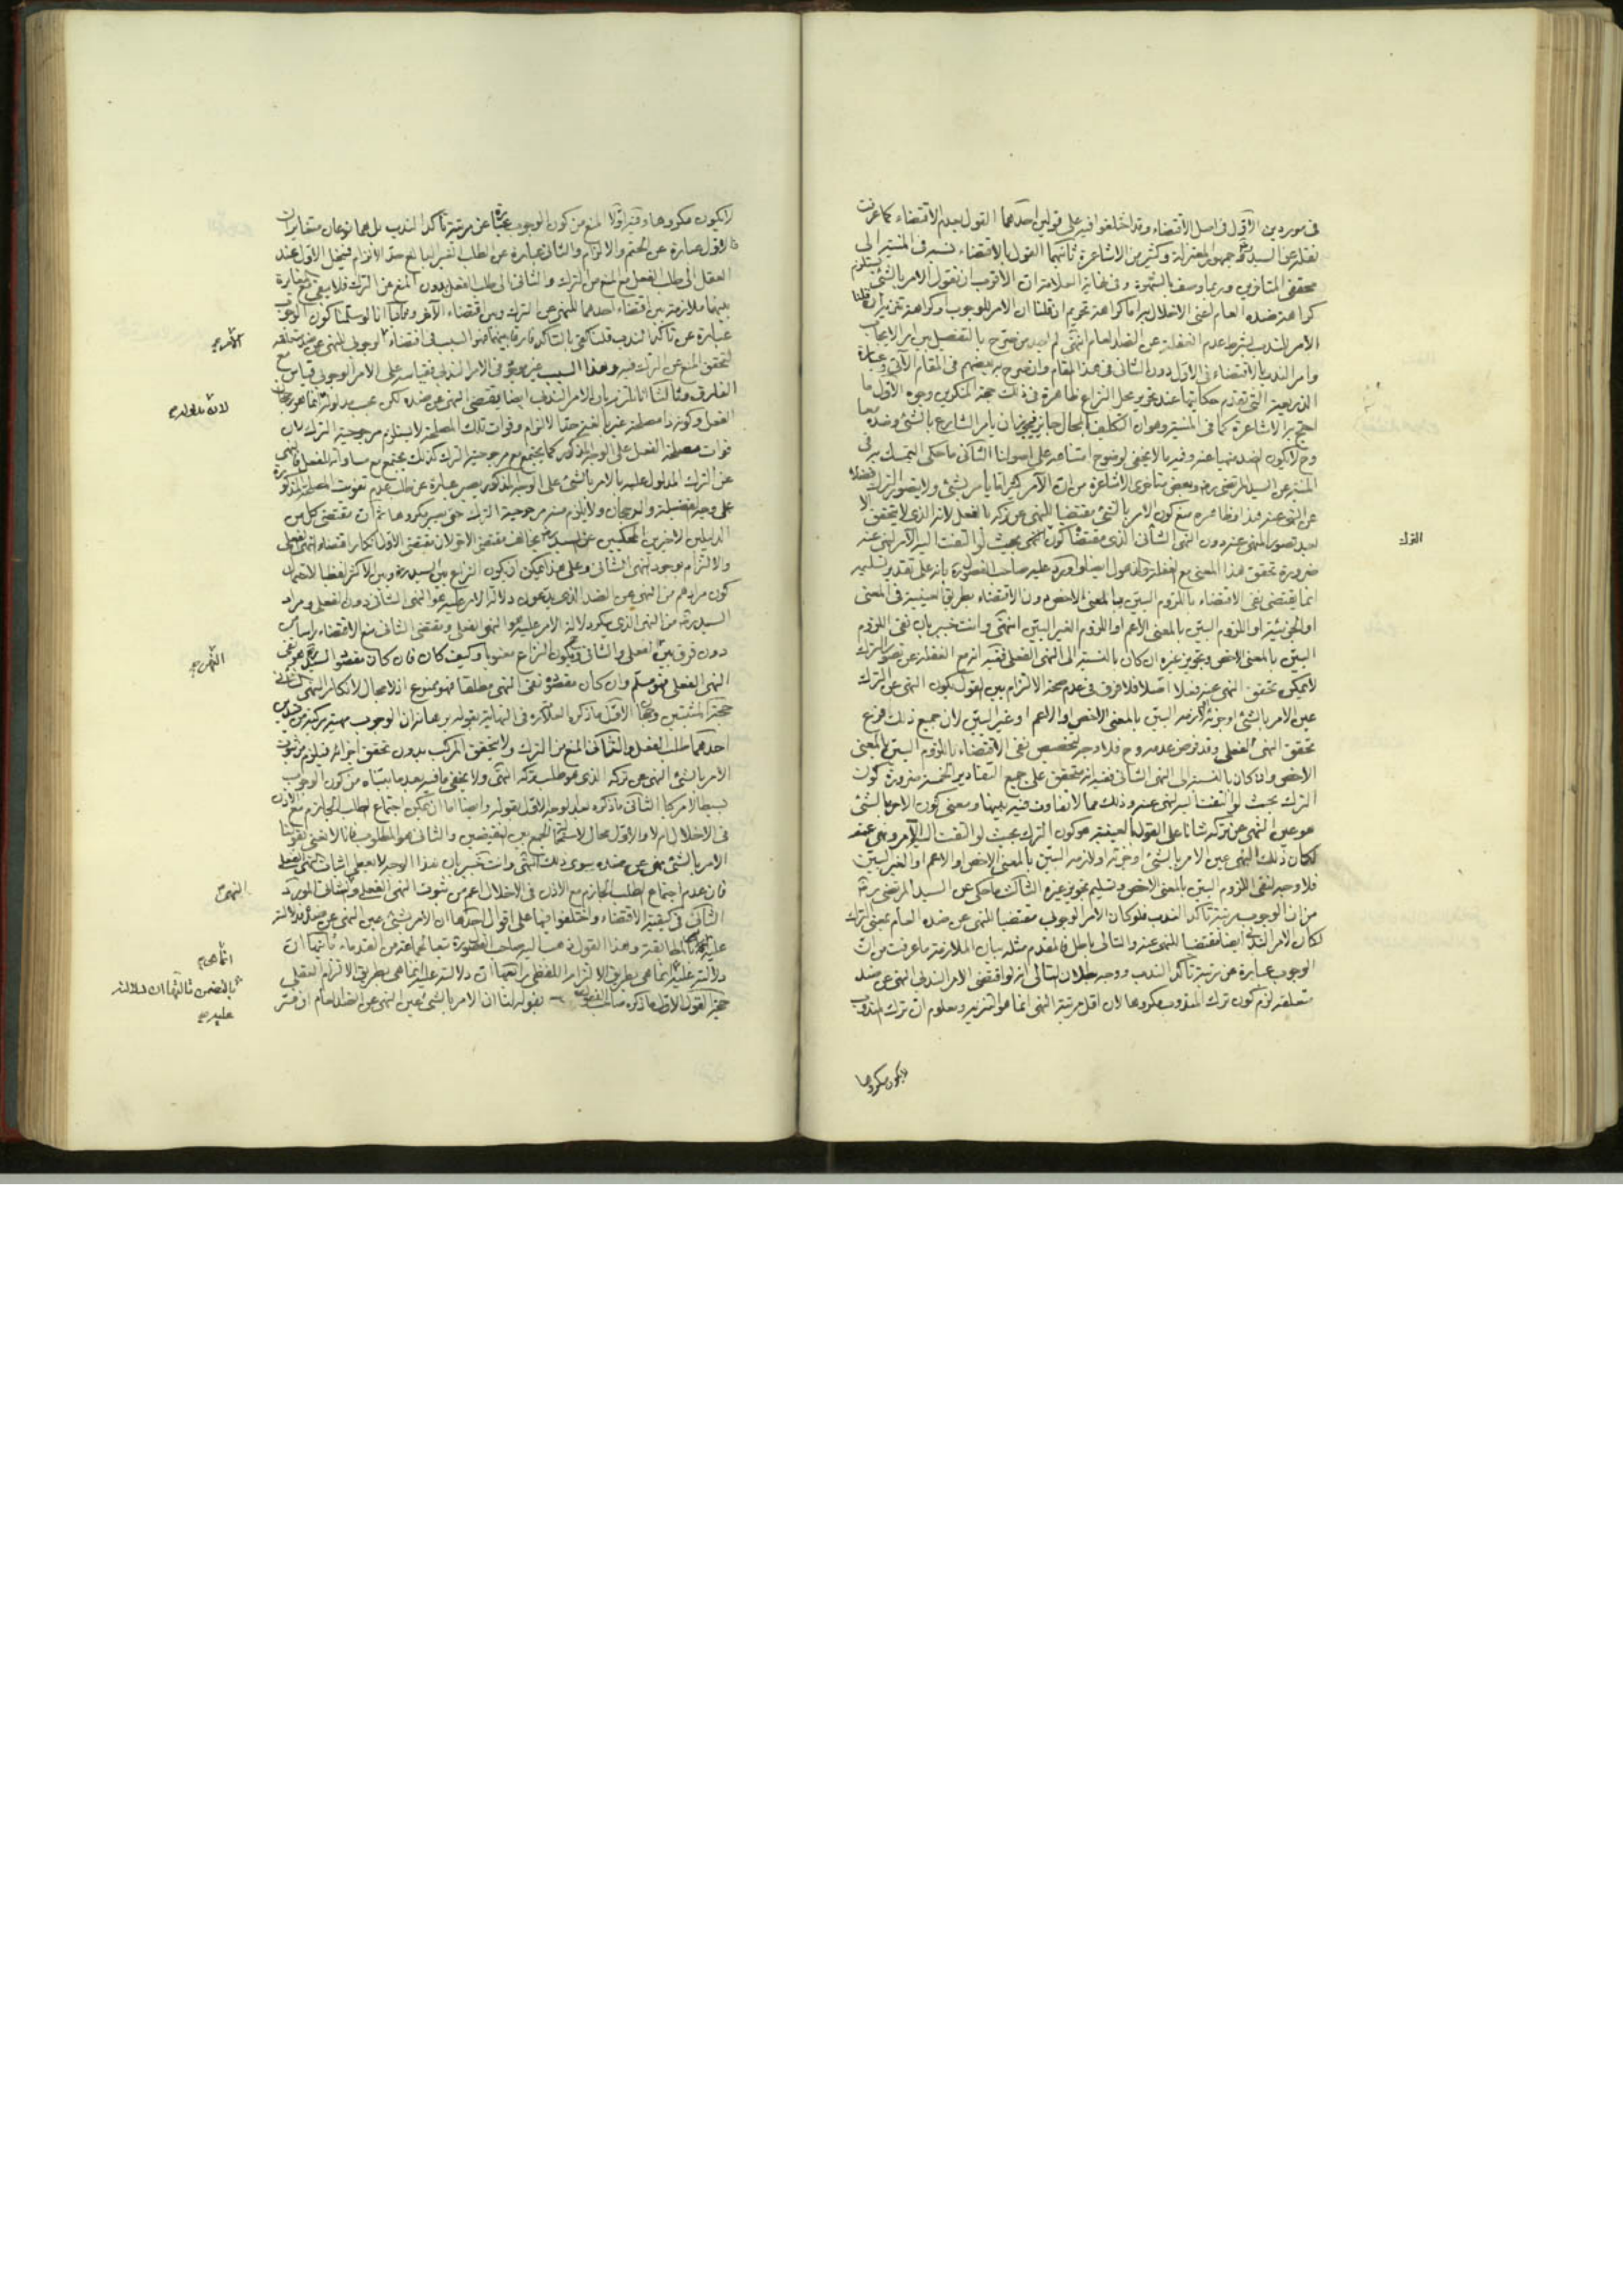 في موردين الاول في اصل الاقتضاء وقد اختلفوا فيه على قولين احدهما القول بعدم الاقتضاء كما عرفت
نقله عن السيد وجمهور المعتزلة وكثير من الاشاعرة ثانيهما القول بالاقتضاء نسبه في المنية الى
محققي المتأخرين وربما وصف بالشهرة وفي غاية العلامة ان الاقرب ان نقول الامر بالشئ يستلزم
كراهة ضده العام لنفي الاخلال به اما كراهة تحريم ان قلنا ان الامر للوجوب او كراهة تنزيه ان قلنا
الامر للندب بشرط عدم الغفلة عن الضد العام انتهى لم نجد من صرح بالتفصيل بين امر الايجاب
وامر الندب بالاقتضاء في الاول دون الثاني في هذا المقام وان صرح به بعضهم في المقام الآتي وعبارة
الذريعة التي تقدم حكايتها عند تحرير محل النزاع ظاهرة في ذلك حجة المنكرين وجوه الاول ما
احتج به الاشاعرة كما في المنية وهو ان التكليف بالمحال جايز فيجوز ان يأمر الشارع بالشئ وضده معا
وح لا يكون الضد منهيا عنه وفيه ما لا يخفى لوضوح امتناعه على اصولنا الثاني ما حكى التمسك به في
المنية عن السيد المرتضى ره وبعض متأخري الاشاعرة من ان الآمر كثيرا ما يأمر بشئ ولا يتصور الترك فضلا
عن النهي عنه
بعد تصور المنهي عنه دون النهي الشأني الذي مقتضاه كون النهي بحيث لو التفت اليه الآمر لنهى عنه
ضرورة تحقق هذا المعنى مع الغفلة والذهول ايضا واورد عليه صاحب الفصول ره بانه على تقدير تسليمه
انما يقتضي نفي الاقتضاء باللزوم البين بالمعنى الاخص دون الاقتضاء بطريق العينية في المعنى
او الجزئية او اللزوم البين بالمعنى الاعم او اللزوم الغير البين انتهى وانت خبير بان نفي اللزوم
البين بالمعنى الاخص وتجويز غيره ان كان بالنسبة الى النهي الفعلي ففيه انه مع الغفلة عن تصور الترك
لا يمكن تحقق النهي عنه فعلا اصلا فلا فرق في عدم صحة الالتزام بين القول بكون النهي عن الترك
عين الامر بالشئ او جزئه او لازمه البين بالمعنى الاخص او الاعم او غير البين لان جميع ذلك فرع
تحقق النهي الفعلي وقد فرض عدمه وح فلا وجه لتخصيص نفي الاقتضاء باللزوم البين بالمعنى
الاخص وان كان بالنسبة الى النهي الشأني ففيه انه متحقق على جميع التقادير الخمسة ضرورة كون
الترك بحيث لو التفت اليه لنهى عنه وذلك مما لا تفاوت فيه بينها ومعنى كون الامر بالشئ
هو عين النهي عن تركه شأنا على القول بالعينية هو كون الترك بحيث لو التفت اليه الآمر ونهى عنه
لكان ذلك النهي عين الامر بالشئ او جزئه او لازمه البين بالمعنى الاخص او الاعم او الغير البين
فلا وجه لنفي اللزوم البين بالمعنى الاخص وتسليم تجويز غيره الثالث ما حكى عن السيد المرتضى ره
من ان الوجوب مرتبة تأكد الندب فلو كان الامر الوجوبي مقتضيا للنهي عن ضده العام بمعنى الترك
لكان الامر الندبي ايضا مقتضيا للنهي عنه والتالي باطل فالمقدم مثله بيان الملازمة ما عرفت من ان
الوجوب عبارة عن مرتبة تأكد الندب ووجه بطلان التالي انه لو اقتضى الامر الندبي النهي عن ضد
متعلقه لزم كون ترك المندوب مكروها لان اقل مرتبة النهي انما هو التنزيه ومعلوم ان ترك المندوب
الترك
لا يكون مكروها
لا يكون مكروها وفيه اولا المنع من كون الوجوب عبارة عن مرتبة تأكد الندب بل هما نوعان متغايران
فالاول عبارة عن الحتم والالزام والثاني عبارة عن الطلب الغير البالغ حد الالزام فينحل الاول عند
العقل الى طلب الفعل مع المنع من الترك والثاني الى طلب الفعل بدون المنع من الترك فلا يبقى مع مغايرة
بينهما ملازمة بين اقتضاء احدهما للنهي عن الترك وبين اقتضاء الآخر وثانيا انا لو سلمنا كون الوجوب
عبارة عن تأكد الندب قلنا كفى بالتأكد فارقا بينهما فهو السبب في اقتضاء الوجوبي للنهي عن ضد متعلقه
لتحقق المنع عن الترك فيه وهذا السبب غير موجود في الامر الندبي فقياسه على الامر الوجوبي قياس مع
الفارق وثالثا انا نلتزم بان الامر الندبي ايضا يقتضي النهي عن ضده لكن بحسب مدلوله انما هو رجحان
الفعل وكونه ذا مصلحة غير بالغة حد الالزام وفوات تلك المصلحة لا يستلزم مرجوحية الترك لان
فوات مصلحة الفعل على الوجه المذكور كما يجتمع مع مرجوحية الترك كذلك يجتمع مع مساواته للفعل فالنهي
عن الترك المدلول عليه بالامر بالشئ على الوجه المذكور يصير عبارة عن طلب عدم تفويت المصلحة المذكورة
على وجه الفضيلة والرجحان ولا يلزم منه مرجوحية الترك حتى يصير مكروها ثم ان مقتضى كل من
الدليلين الاخيرين المحكيين عن السيد ره يخالف مقتضى الآخر لان مقتضى الاول انكار اقتضاء النهي الفعلي
والالتزام بوجود النهي الشأني وعلى هذا يمكن ان يكون النزاع بين السيد ره وبين الاكثر لفظيا لاحتمال
كون مرادهم من النهي عن الضد الذي يدعون دلالة الامر عليه هو النهي الشأني دون الفعلي ومراد
السيد ره من النهي الذي ينكر دلالة الامر عليه هو النهي الفعلي ومقتضى الثاني منع الاقتضاء راسا من
دون فرق بين الفعلي والشأني فيكون النزاع معنويا وكيف كان فان كان مقصود السيد ره هو نفي
النهي الفعلي فهو مسلم وان كان مقصوده نفي النهي مطلقا فهو ممنوع اذ لا مجال لانكار النهي الشأني
حجة المثبتين وجهان الاول ما ذكره العلامة ره في النهاية بقوله برهانه ان الوجوب مهية مركبة من قيدين
احدهما طلب الفعل والثاني المنع من الترك ولا يتحقق المركب بدون تحقق اجزائه فيلزم من ثبوت
الامر بالشئ النهي عن تركه الذي هو طلب تركه انتهى ولا يخفى ما فيه بعد ما بيناه من كون الوجوب
بسيطا لا مركبا الثاني ما ذكره بعد الوجه الاول بقوله وايضا اما ان يمكن اجتماع الطلب الجازم مع الاذن
في الاخلال ام لا والاول محال لاستحالة الجمع بين النقيضين والثاني هو المطلوب فانا لا نعني بقولنا
الامر بالشئ نهي عن ضده سوى ذلك انتهى وانت خبير بان هذا الوجه لا يعطي اثبات النهي الفعلي
فان عدم اجتماع الطلب الجازم مع الاذن في الاخلال اعم من ثبوت النهي الفعلي والشأني المورد
الثاني في كيفية الاقتضاء واختلفوا فيها على اقوال احدها ان الامر بشئ عين النهي عن ضده فدلالته
عليه بالمطابقة وهذا القول ذهب اليه صاحب الفصول ره تبعا لجماعة من القدماء ثانيها ان
دلالته عليه انما هي بطريق الالتزام اللفظي رابعها ان دلالته عليه انما هي بطريق الالتزام العقلي
حجة القول الاول ما ذكره صاحب الفصول ره بقوله لنا ان الامر بالشئ عين النهي عن الضد العام ان فسر
الامر
لان مدلوله
النهي
النهي
انما هي
بالتضمن ثالثها ان دلالته
عليه